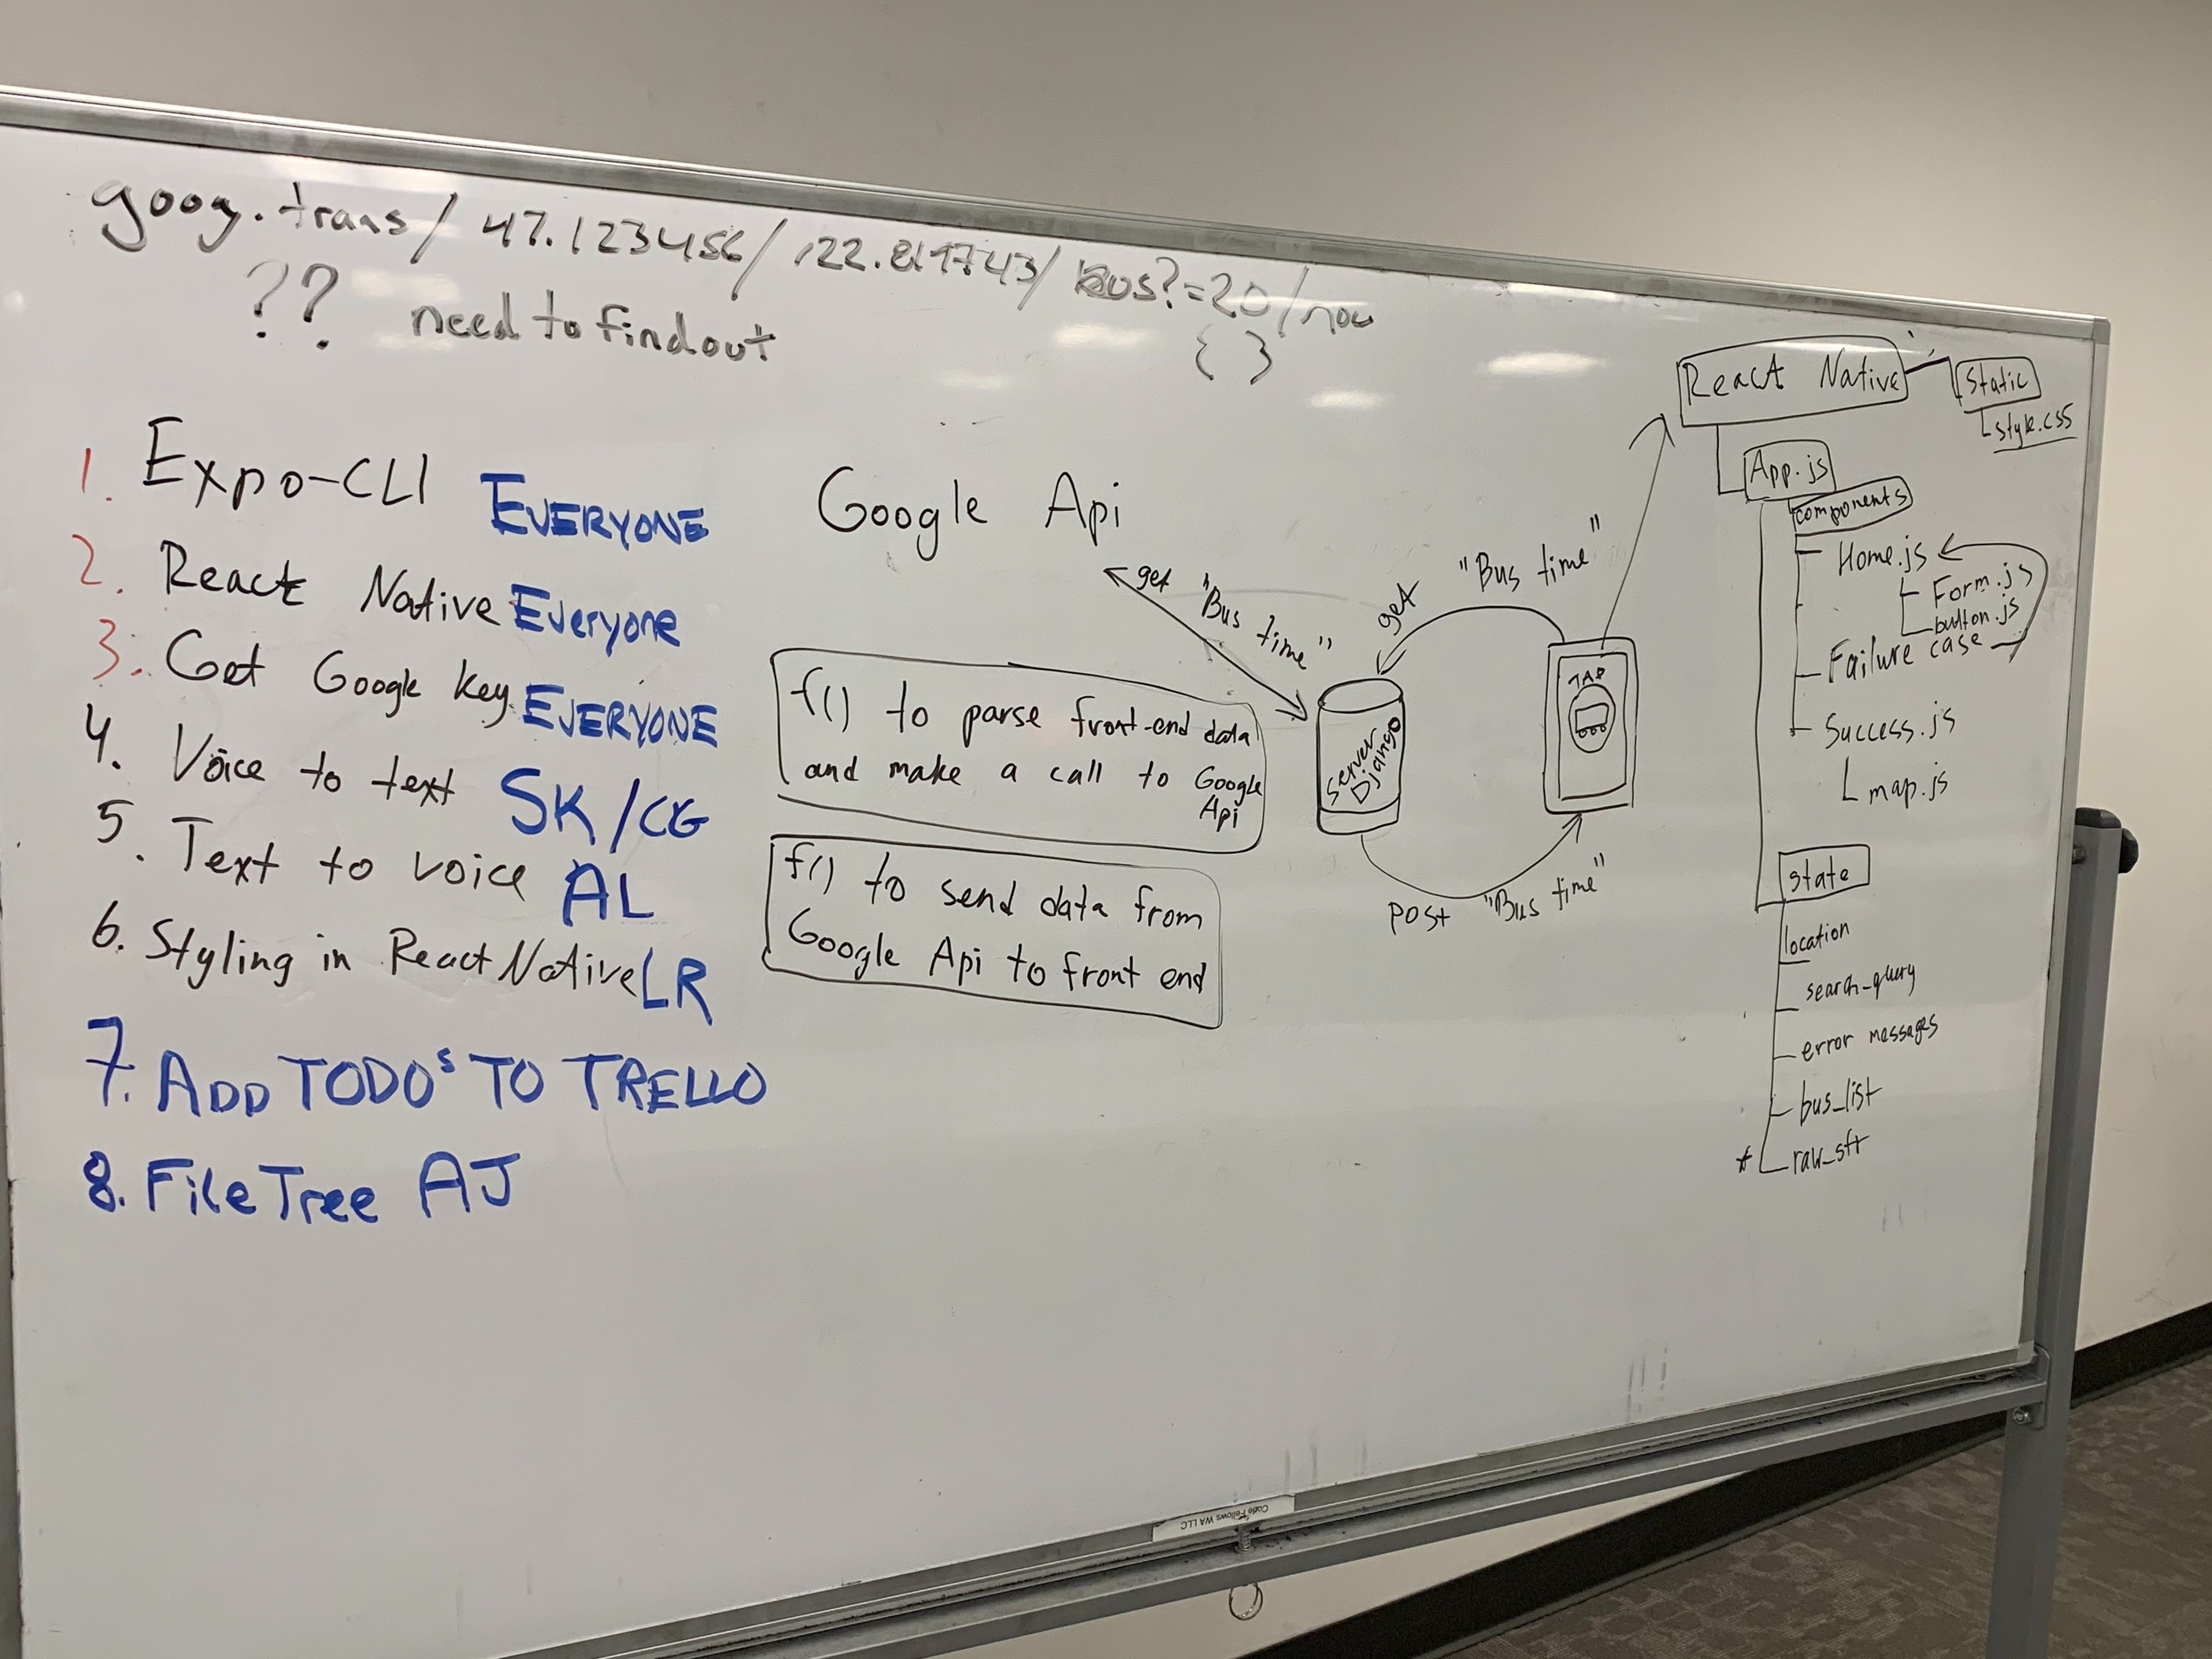 goog.trans/ 47.123456/ 122.819743/ Bus?=20/now
?? need to find out
{ }
1. Expo-CLI EVERYONE
2. React Native Everyone
3. Get Google key EVERYONE
4. Voice to text SK/CG
5. Text to voice AL
6. Styling in React Native LR
7. ADD TODOs TO TRELLO
8. File Tree AJ
Google Api
get "Bus time"
f() to parse front-end data
and make a call to Google
Api
f() to send data from
Google Api to front end
Server
Django
get "Bus time"
TAP
post "Bus time"
React Native
static
style.css
App.js
components
Home.js
Form.js
button.js
Failure case
Success.js
map.js
state
location
search_query
error messages
bus_list
* raw_sft
Code Fellows WA LLC